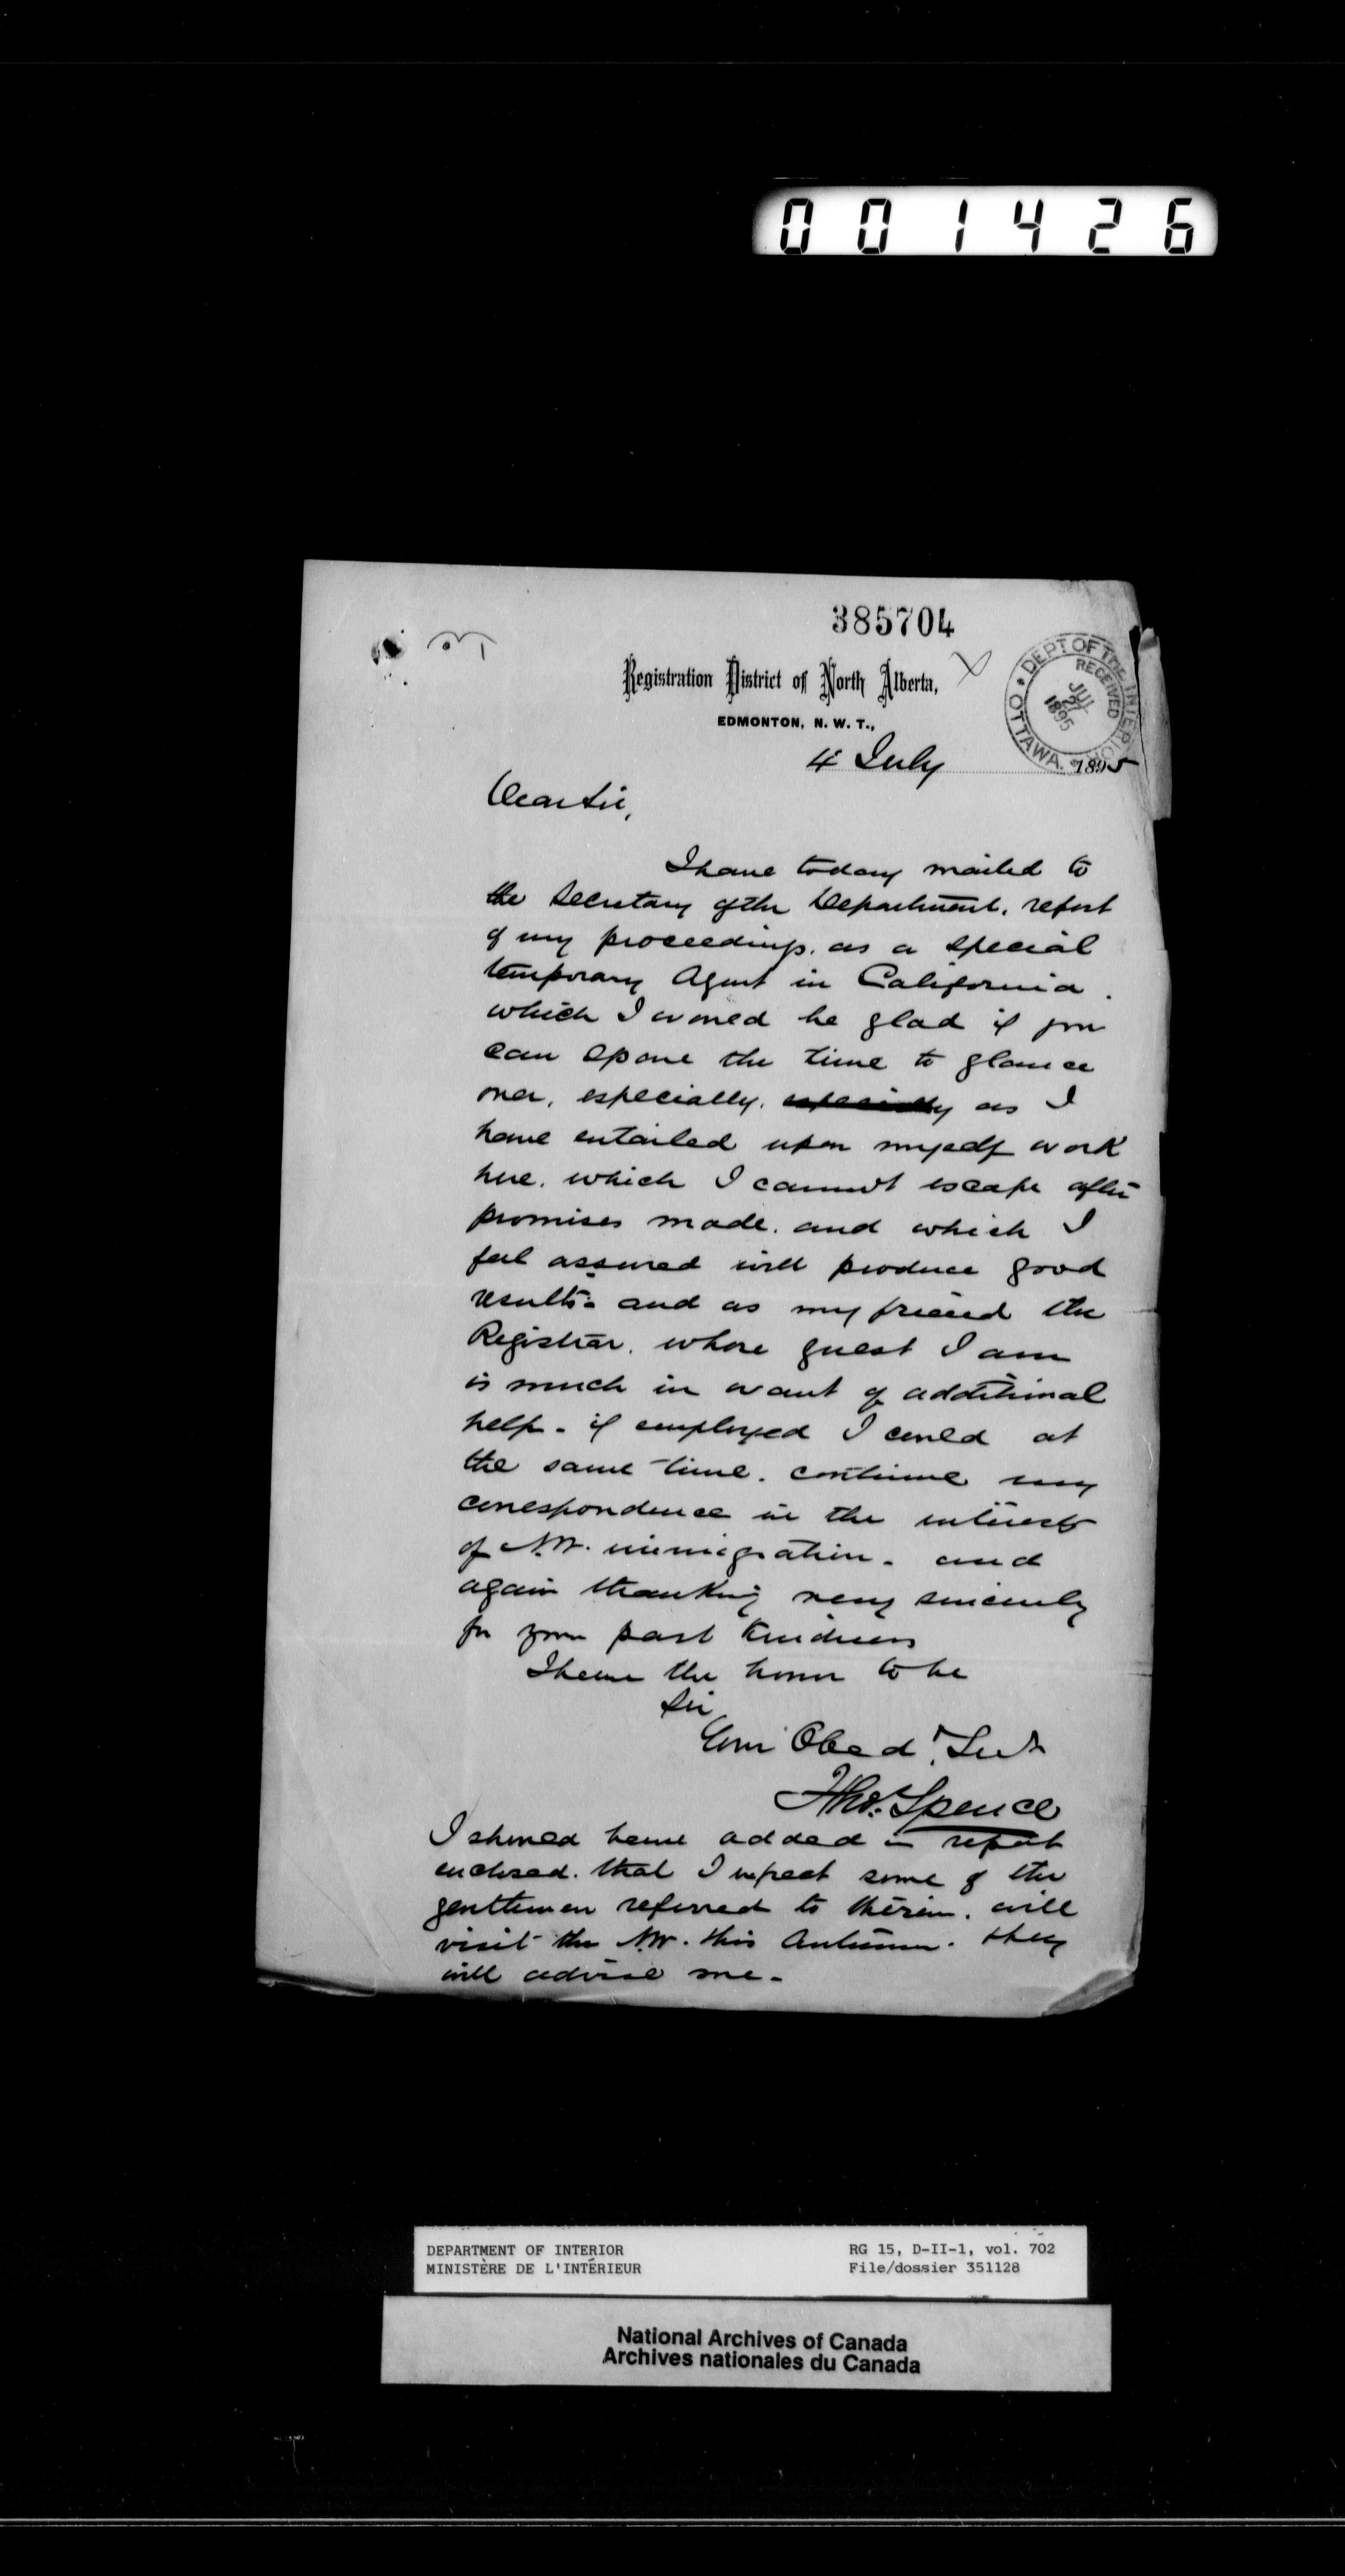 001426
385704
Registration District of North Alberta,
EDMONTON, N. W. T.,
DEPT OF THE INTERIOR
RECEIVED
JUL
1895
OTTAWA.
4 July 1895
Dear Sir,
I have today mailed to
the Secretary of the Department, report
of my proceedings, as a special
temporary Agent in California.
which I would be glad if you
can spare the time to glance
over, especially, especially as I
have entailed upon myself work
here, which I cannot escape after
promises made, and which I
feel assured will produce good
results - and as my friend the
Registrar, whose guest I am
is much in want of additional
help - if employed I could at
the same time, continue my
correspondence in the interests
of N.W. immigration - and
again thanking very sincerely
for your past kindness
I have the honor to be
Sir
Your Obedt. Svt
Tho. Spence
I should have added in report
enclosed, that I expect some of the
gentlemen referred to therein, will
visit the N.W. this Autumn. they
will advise me -
DEPARTMENT OF INTERIOR
MINISTÈRE DE L'INTÉRIEUR
RG 15, D-II-1, vol. 702
File/dossier 351128
National Archives of Canada
Archives nationales du Canada